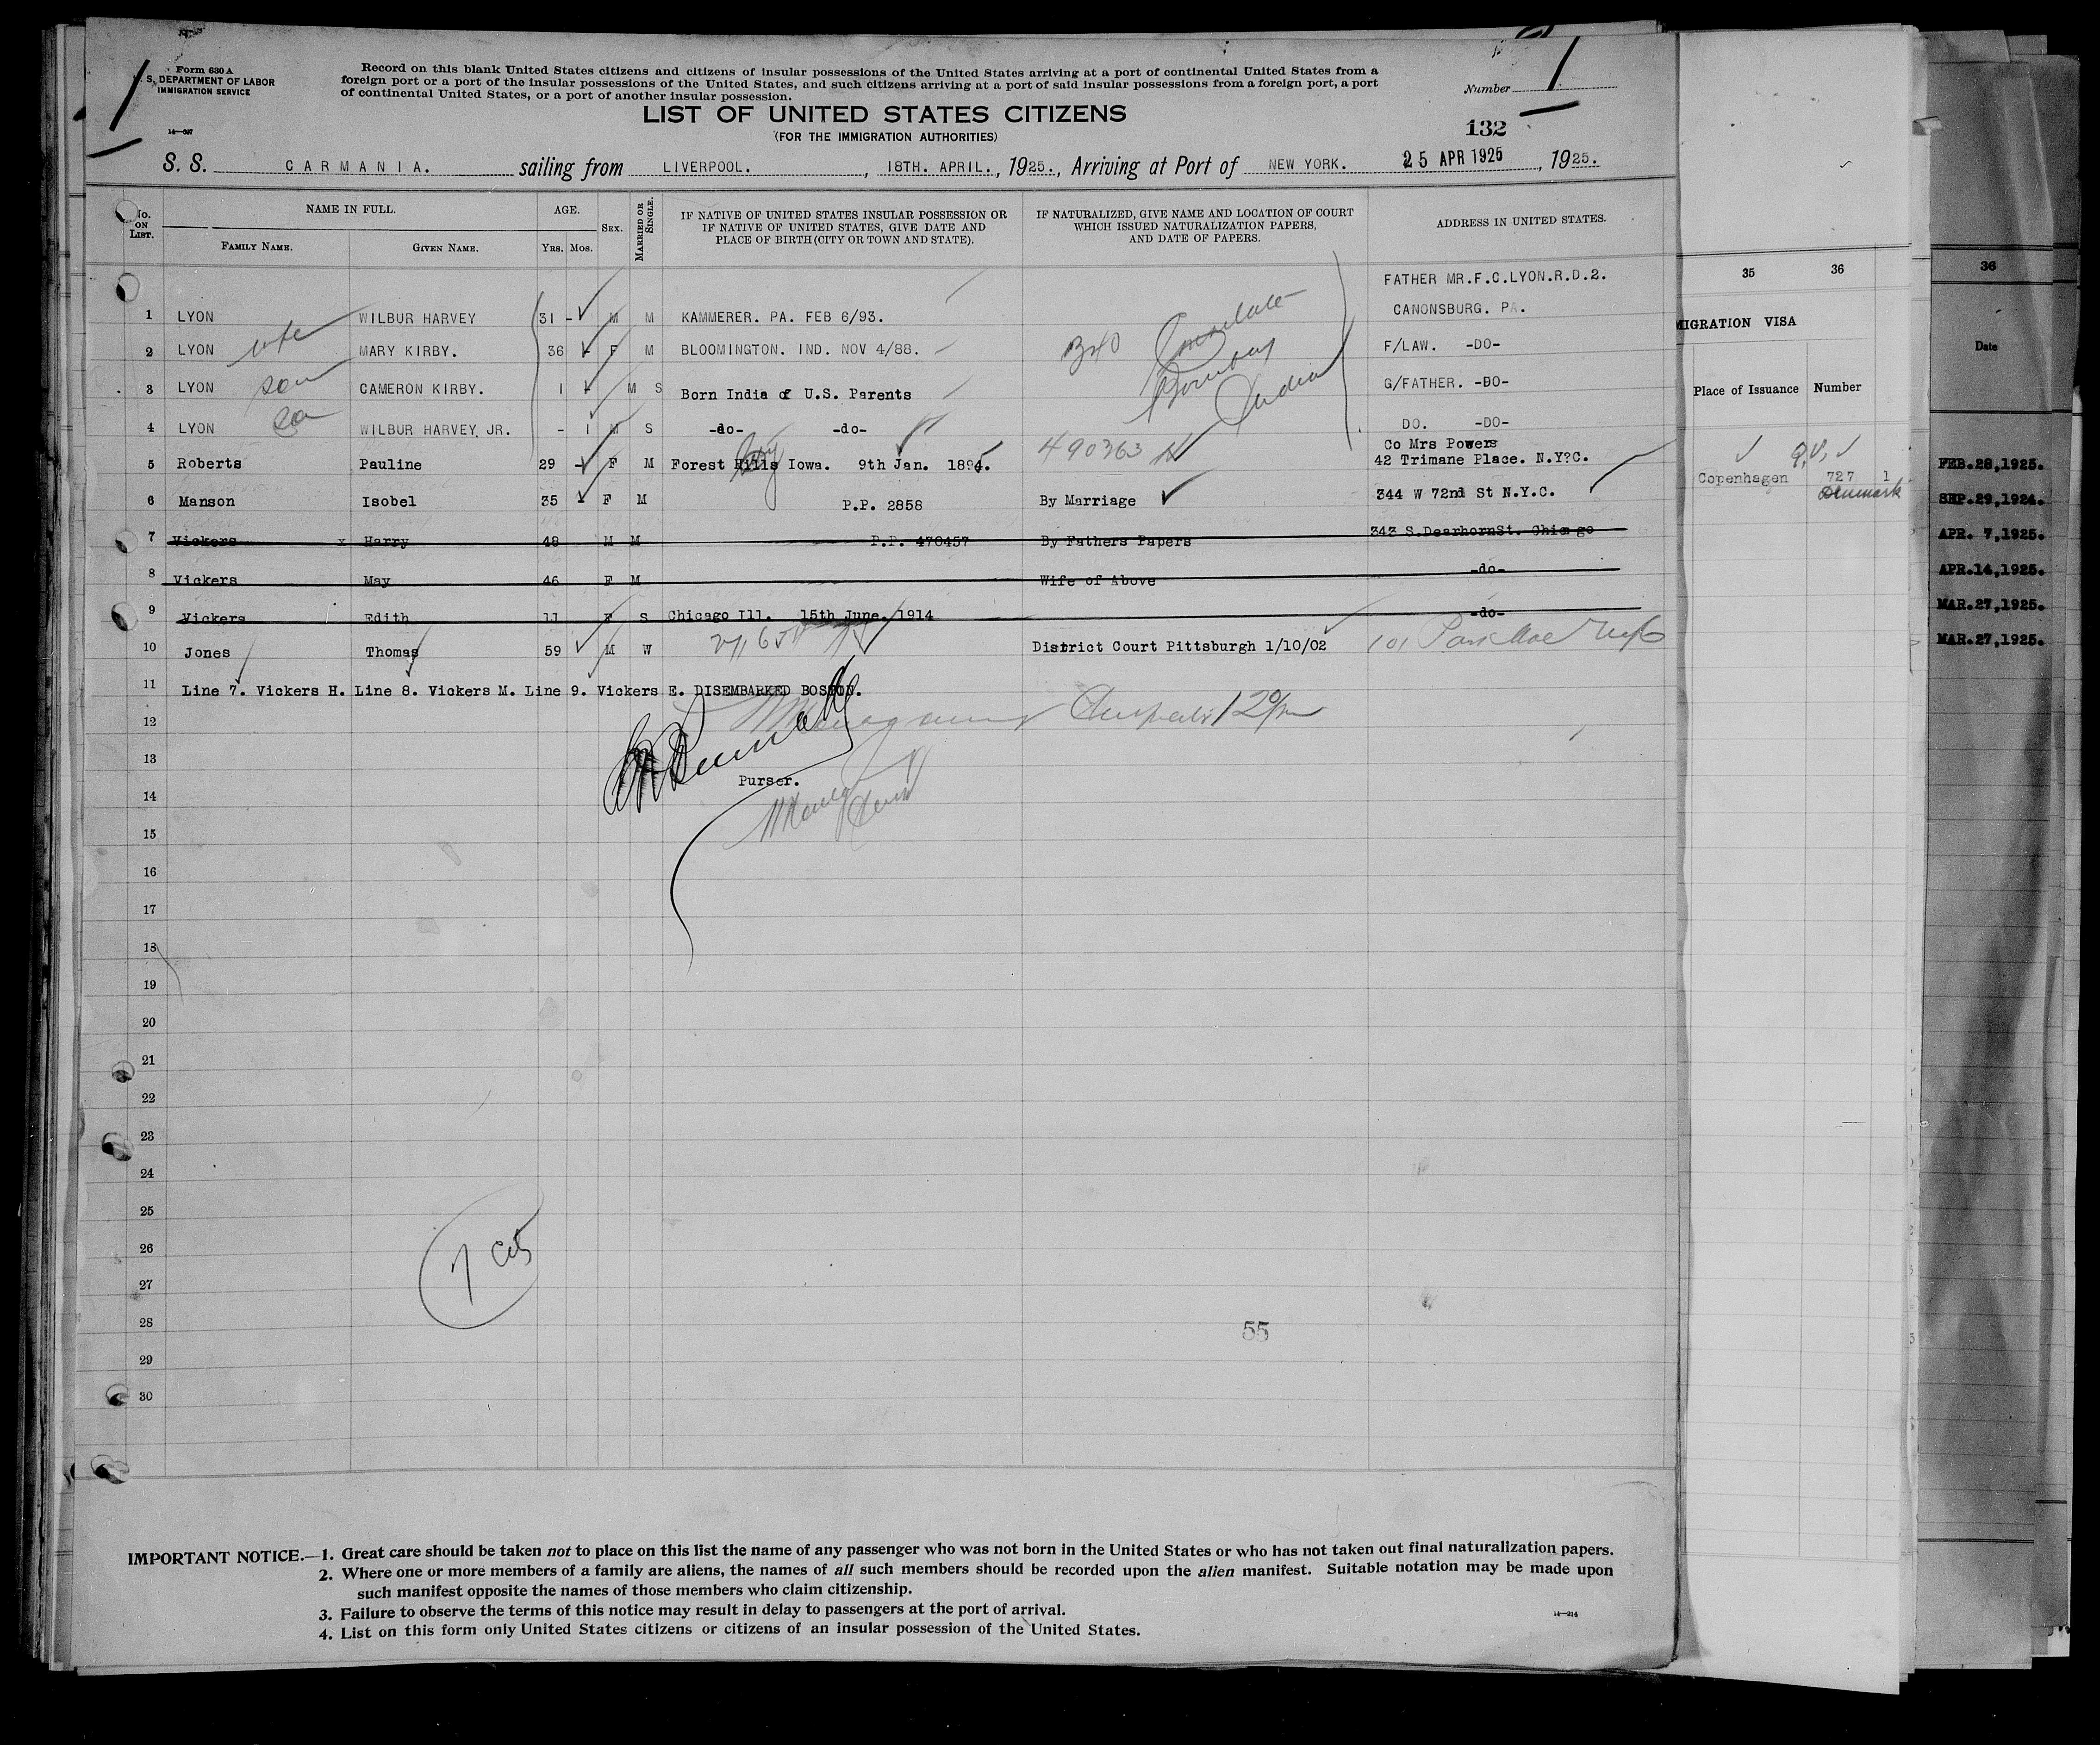 Form 630 A
S. DEPARTMENT OF LABOR
IMMIGRATION SERVICE
14—697
Record on this blank United States citizens and citizens of insular possessions of the United States arriving at a port of continental United States from a
foreign port or a port of the insular possessions of the United States, and such citizens arriving at a port of said insular possessions from a foreign port, a port
of continental United States, or a port of another insular possession.
Number 1
1
LIST OF UNITED STATES CITIZENS
(FOR THE IMMIGRATION AUTHORITIES)
132
S. S. CARMANIA. sailing from LIVERPOOL. , 18TH. APRIL. , 1925., Arriving at Port of NEW YORK. 25 APR 1925 , 1925.
No. ON LIST. NAME IN FULL. AGE. SEX. MARRIED OR SINGLE. IF NATIVE OF UNITED STATES INSULAR POSSESSION OR IF NATIVE OF UNITED STATES, GIVE DATE AND PLACE OF BIRTH (CITY OR TOWN AND STATE). IF NATURALIZED, GIVE NAME AND LOCATION OF COURT WHICH ISSUED NATURALIZATION PAPERS, AND DATE OF PAPERS. ADDRESS IN UNITED STATES.
FAMILY NAME. GIVEN NAME. YRS. MOS.
FATHER MR.F.C.LYON.R.D.2.
1 LYON WILBUR HARVEY 31 - M M KAMMERER. PA. FEB 6/93. CANONSBURG. PA.
2 LYON wife MARY KIRBY. 36 - F M BLOOMINGTON. IND. NOV 4/88. F/LAW. -DO-
3 LYON son CAMERON KIRBY. 1 - M S Born India of U.S. Parents G/FATHER. -DO-
340 Consulate
Bombay
India
4 LYON son WILBUR HARVEY JR. - 1 M S -do- -do- DO. -DO-
Co Mrs Powers
5 Roberts Pauline 29 - F M Forest Hills City Iowa. 9th Jan. 1894. 490363 42 Trimane Place. N.Y?C.
6 Manson Isobel 35 - F M P.P. 2858 By Marriage 344 W 72nd St N.Y.C.
7 Vickers x Harry 48 M M P.P. 470457 By Fathers Papers 343 S.DearhornSt. Chicago
8 Vickers May 46 F M Wife of Above -do-
9 Vickers Edith 11 F S Chicago Ill. 15th June. 1914 -do-
10 Jones Thomas 59 M W District Court Pittsburgh 1/10/02 101 Park
11 Line 7. Vickers H. Line 8. Vickers M. Line 9. Vickers E. DISEMBARKED BOSTON.
12
13
Purser.
14
15
16
17
18
19
20
21
22
23
24
25
26
27
28
29
30
7 cits
55
IMPORTANT NOTICE.—1. Great care should be taken not to place on this list the name of any passenger who was not born in the United States or who has not taken out final naturalization papers.
2. Where one or more members of a family are aliens, the names of all such members should be recorded upon the alien manifest. Suitable notation may be made upon
such manifest opposite the names of those members who claim citizenship.
3. Failure to observe the terms of this notice may result in delay to passengers at the port of arrival.
4. List on this form only United States citizens or citizens of an insular possession of the United States.
14—214
35 36
MIGRATION VISA
Place of Issuance Number
Copenhagen 727 1
Denmark
36
Date
FEB.28,1925.
SEP.29,1924.
APR. 7,1925.
APR.14,1925.
MAR.27,1925.
MAR.27,1925.